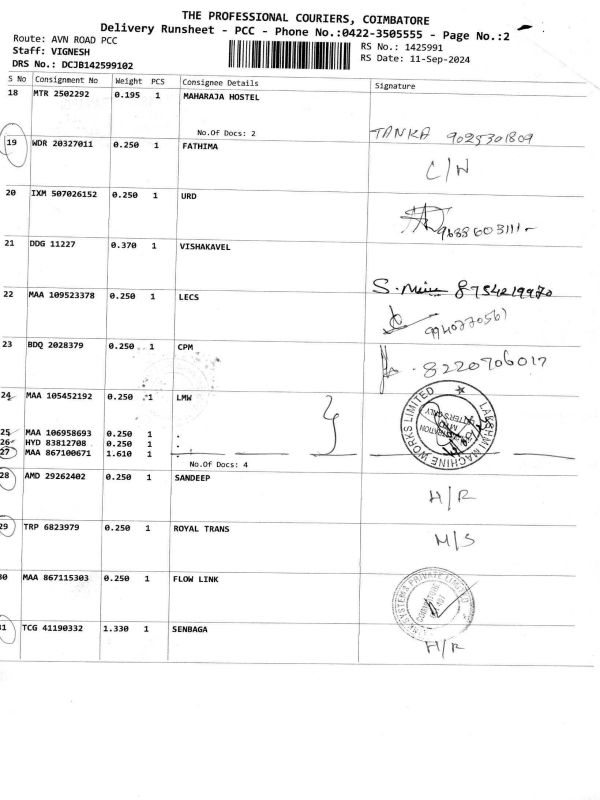 THE PROFESSIONAL COURIERS, COIMBATORE
Delivery Runsheet - PCC - Phone No.:0422-3505555 - Page No.:2
Route: AVN ROAD PCC
RS No.: 1425991
Staff: VIGNESH
RS Date: 11-Sep-2024
DRS No.: DCJB142599102
S No Consignment No Weight PCS Consignee Details Signature
18 MTR 2502292 0.195 1 MAHARAJA HOSTEL
No.Of Docs: 2 TANKA 9025301809
19 WDR 20327011 0.250 1 FATHIMA C/N
20 IXM 507026152 0.250 1 URD
21 DDG 11227 0.370 1 VISHAKAVEL
S. 8754219970
22 MAA 109523378 0.250 1 LECS
23 BDQ 2028379 0.250 1 CPM
8220706017
24 MAA 105452192 0.250 1 LMW LAKSHMI MACHINE WORKS LIMITED
25 MAA 106958693 0.250 1 .
26 HYD 83812708 0.250 1 .
27 MAA 867100671 1.610 1 .
No.Of Docs: 4
28 AMD 29262402 0.250 1 SANDEEP H/R
29 TRP 6823979 0.250 1 ROYAL TRANS M/S
30 MAA 867115303 0.250 1 FLOW LINK SYSTEMS PRIVATE LIMITED
31 TCG 41190332 1.330 1 SENBAGA H/R